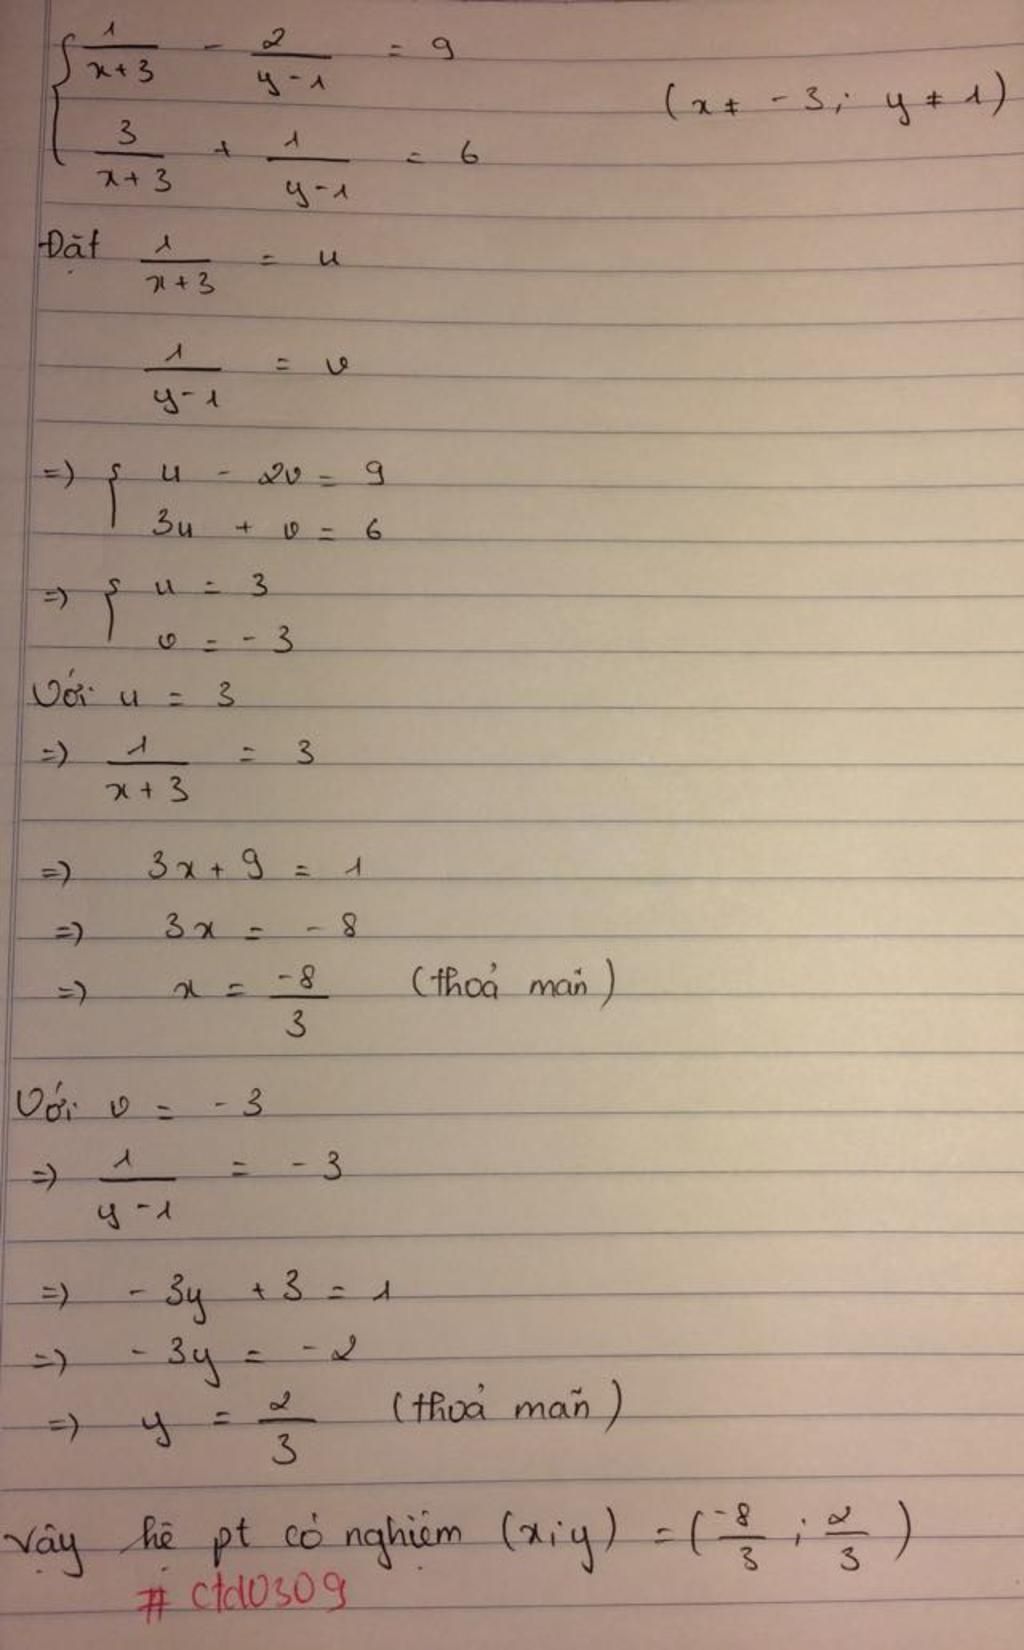 { 1/(x+3) - 2/(y-1) = 9
(x ≠ -3; y ≠ 1)
3/(x+3) + 1/(y-1) = 6
Đặt 1/(x+3) = u
1/(y-1) = v
=> { u - 2v = 9
3u + v = 6
=> { u = 3
v = -3
Với u = 3
=> 1/(x+3) = 3
=> 3x + 9 = 1
=> 3x = -8
=> x = -8/3 (thoả mãn)
Với v = -3
=> 1/(y-1) = -3
=> -3y + 3 = 1
=> -3y = -2
=> y = 2/3 (thoả mãn)
Vậy hệ pt có nghiệm (x;y) = (-8/3 ; 2/3)
# ctd0309